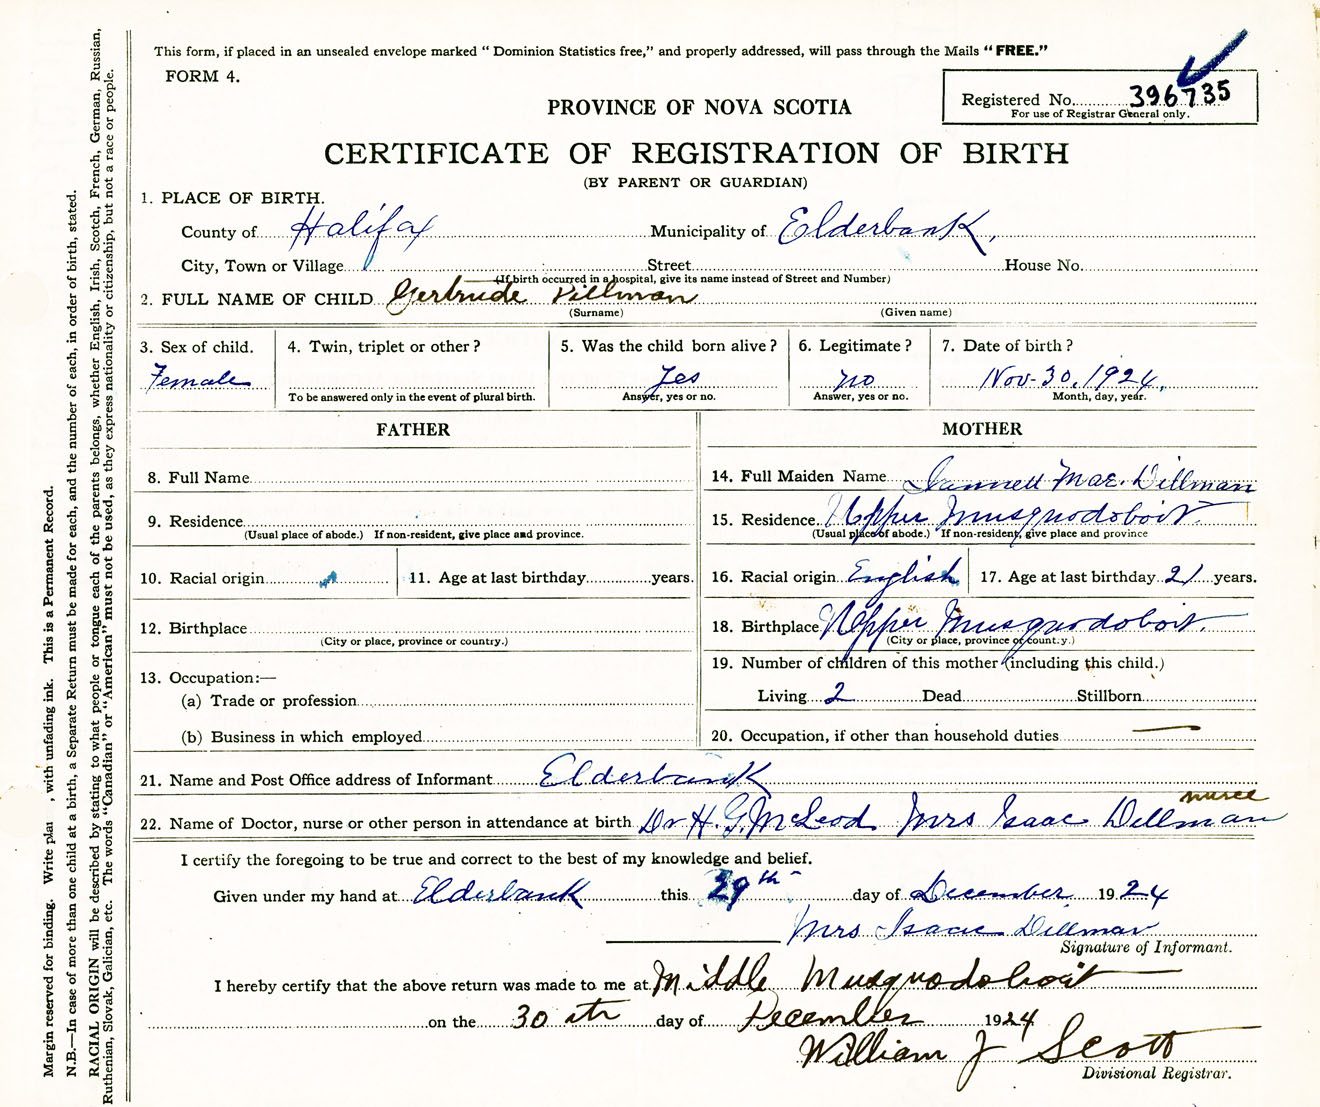 This form, if placed in an unsealed envelope marked "Dominion Statistics free," and properly addressed, will pass through the Mails "FREE."
FORM 4.
Registered No. 396735
For use of Registrar General only.
PROVINCE OF NOVA SCOTIA
CERTIFICATE OF REGISTRATION OF BIRTH
(BY PARENT OR GUARDIAN)
1. PLACE OF BIRTH.
County of Halifax Municipality of Elderbank,
City, Town or Village Street House No.
(If birth occurred in a hospital, give its name instead of Street and Number)
2. FULL NAME OF CHILD Gertrude Dillman
(Surname) (Given name)
3. Sex of child. 4. Twin, triplet or other? 5. Was the child born alive? 6. Legitimate? 7. Date of birth?
Female Yes no Nov. 30, 1924.
To be answered only in the event of plural birth. Answer, yes or no. Answer, yes or no. Month, day, year.
FATHER MOTHER
8. Full Name 14. Full Maiden Name Mae. Dillman
9. Residence 15. Residence Upper Musquodoboit.
(Usual place of abode.) If non-resident, give place and province. (Usual place of abode.) If non-resident, give place and province
10. Racial origin 11. Age at last birthday years. 16. Racial origin English 17. Age at last birthday 21 years.
12. Birthplace 18. Birthplace Upper Musquodoboit.
(City or place, province or country.) (City or place, province or country.)
13. Occupation:— 19. Number of children of this mother (including this child.)
(a) Trade or profession Living 2 Dead Stillborn
(b) Business in which employed 20. Occupation, if other than household duties —
21. Name and Post Office address of Informant Elderbank
22. Name of Doctor, nurse or other person in attendance at birth Dr H. G. McLeod Mrs Isaac Dillman nurse
I certify the foregoing to be true and correct to the best of my knowledge and belief.
Given under my hand at Elderbank this 29th day of December 1924
Mrs Isaac Dillman
Signature of Informant.
I hereby certify that the above return was made to me at Middle Musquodoboit
on the 30th day of December 1924
William J Scott
Divisional Registrar.
Margin reserved for binding. Write plan , with unfading ink. This is a Permanent Record.
N.B.—In case of more than one child at a birth, a Separate Return must be made for each, and the number of each, in order of birth, stated.
RACIAL ORIGIN will be described by stating to what people or tongue each of the parents belongs, whether English, Irish, Scotch, French, German, Russian,
Ruthenian, Slovak, Galician, etc. The words "Canadian" or "American" must not be used, as they express nationality or citizenship, but not a race or people.